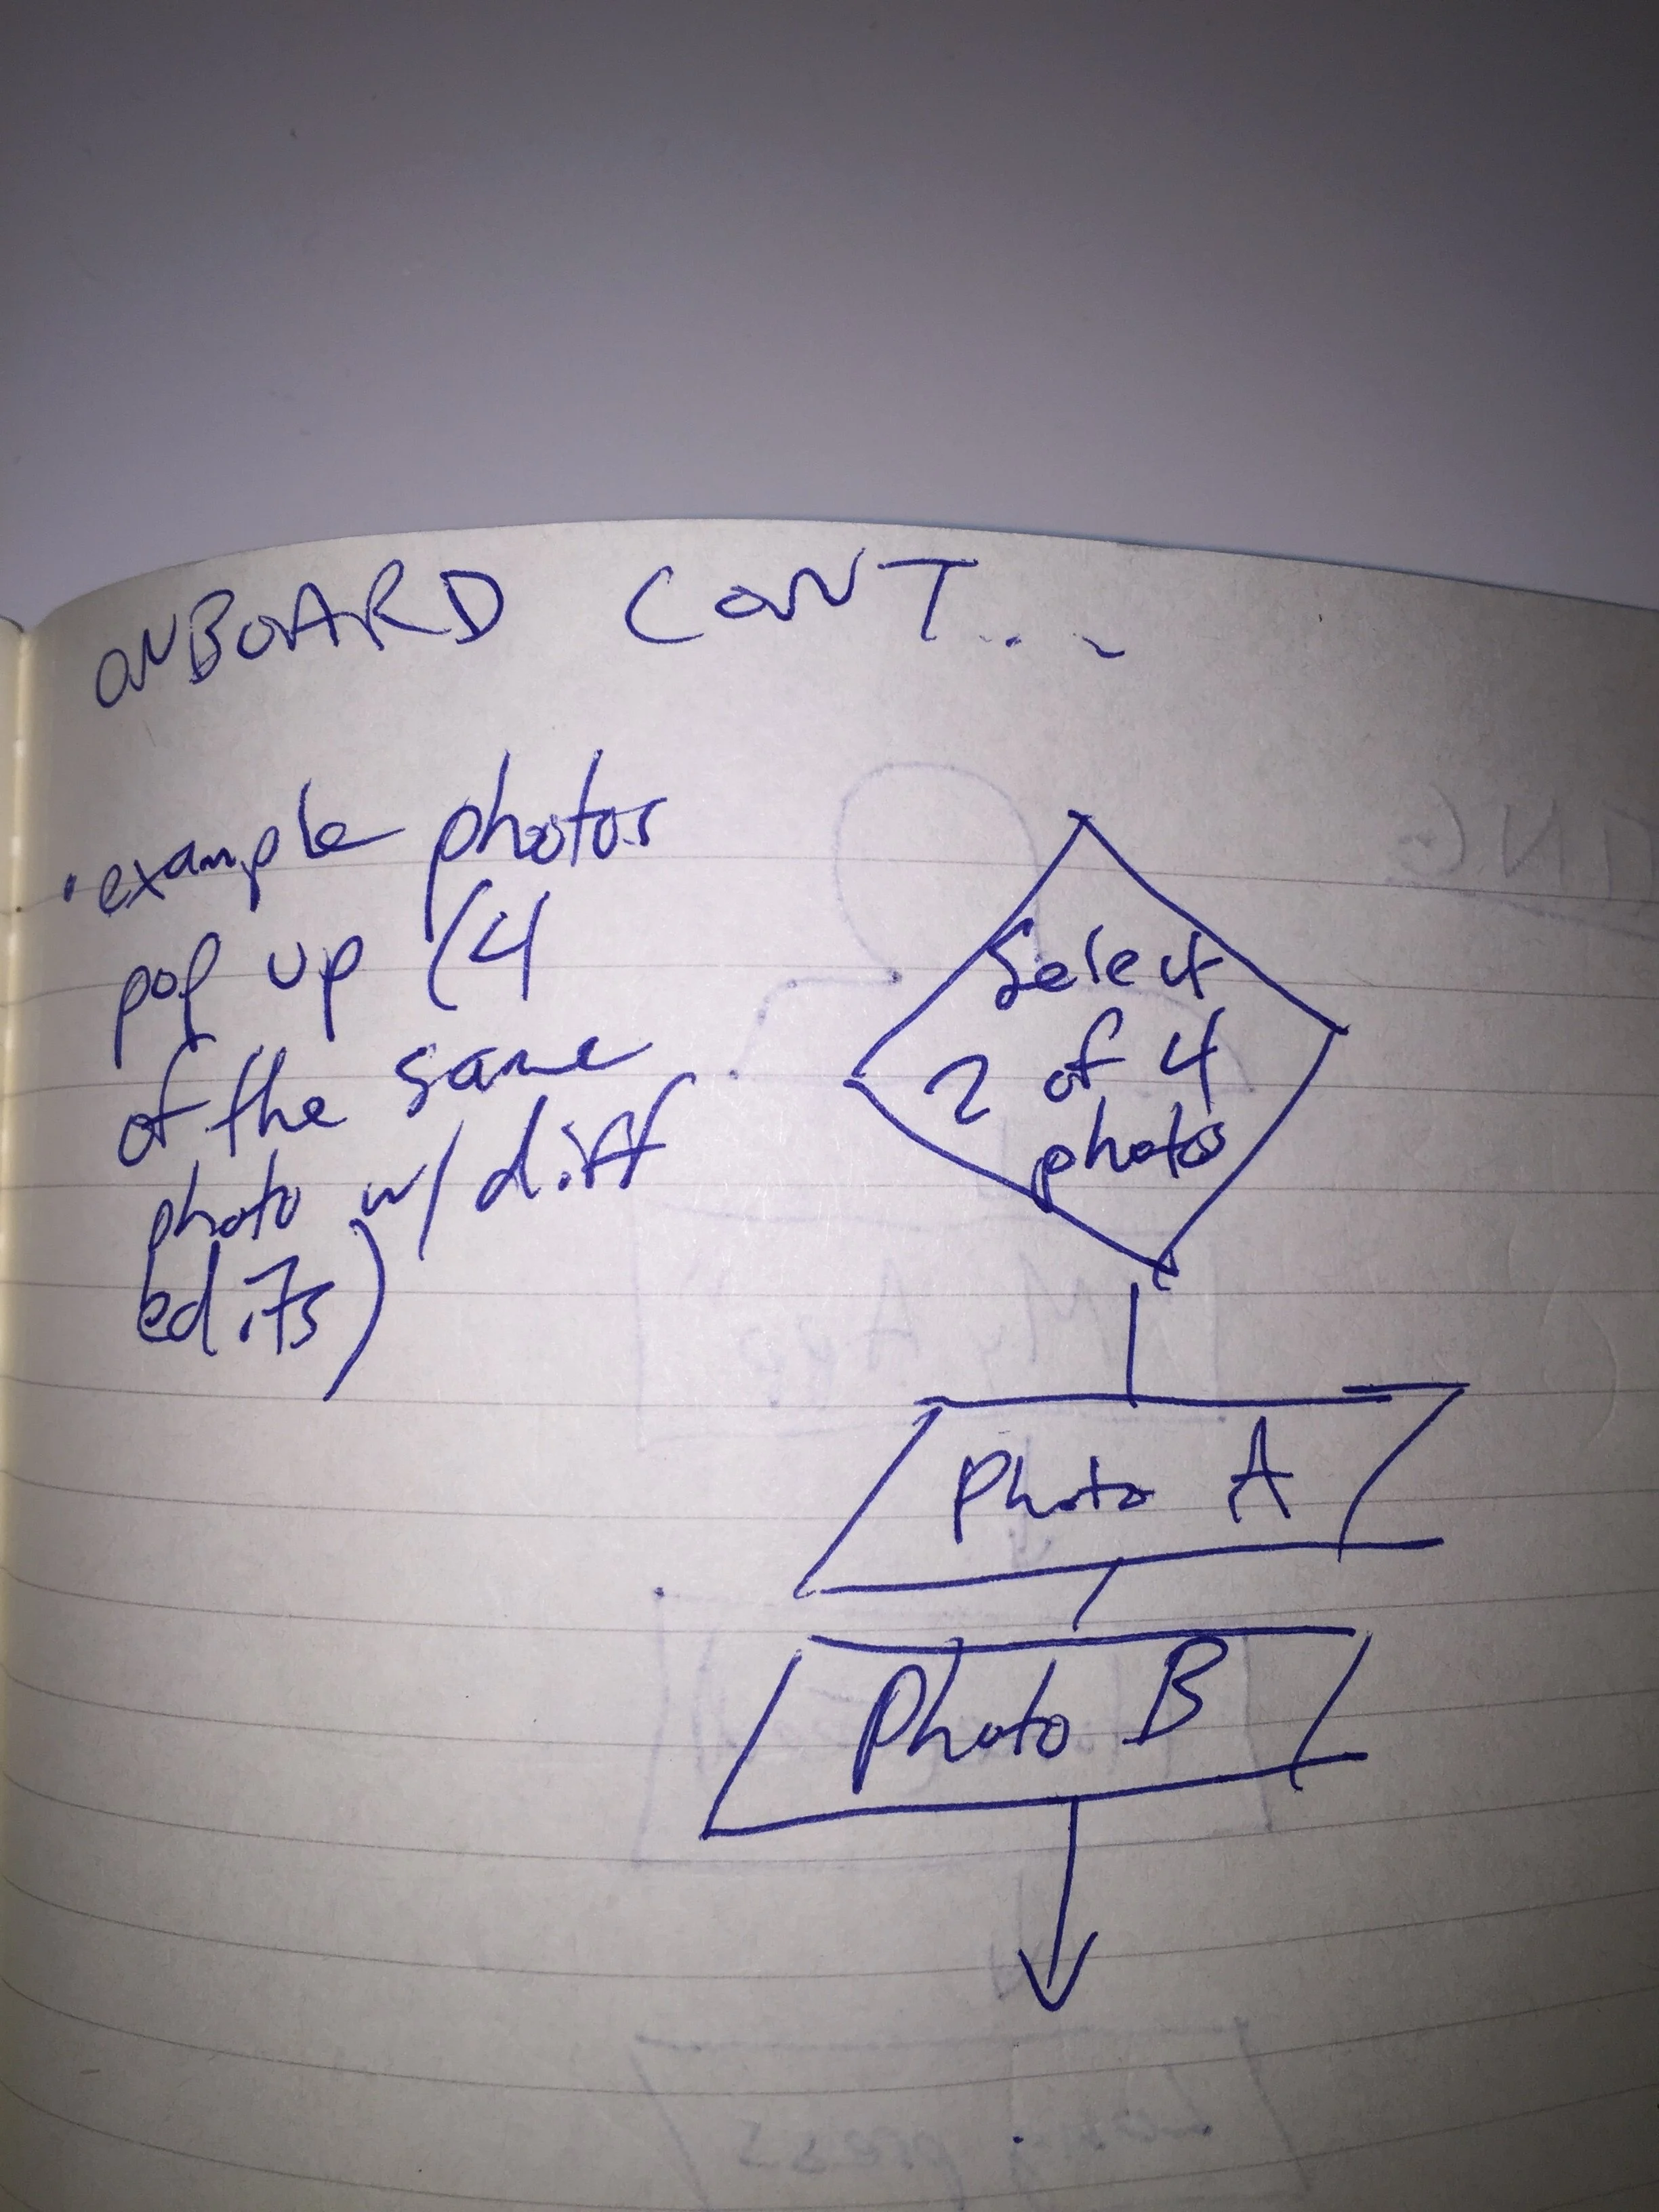 ONBOARD CONT...
• example photos
pop up (4
of the same
photo w/ diff
edits)
Select
2 of 4
photos
Photo A
Photo B